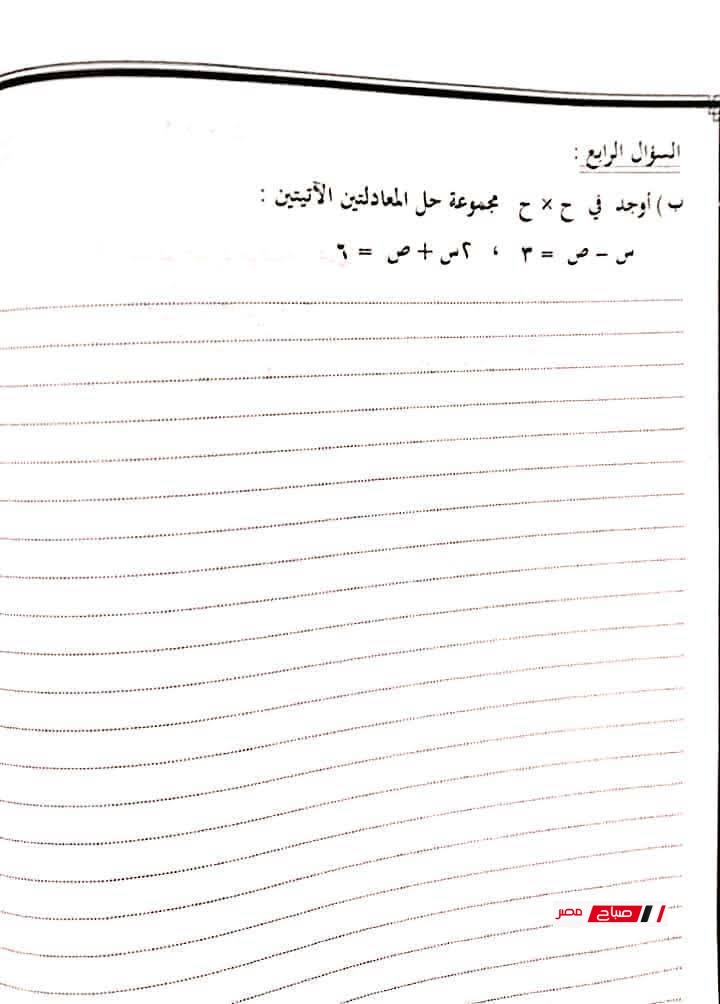 السؤال الرابع :
ب ) أوجد في ح × ح مجموعة حل المعادلتين الآتيتين :
س − ص = ٣ ، ٢س + ص = ٦
صباح مصر